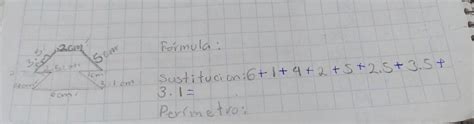 2cm
5cm
Formula:
Sustitucion:6+1+4+2+5+2.5+3.5+
3.1=
3.1cm
Perímetro: